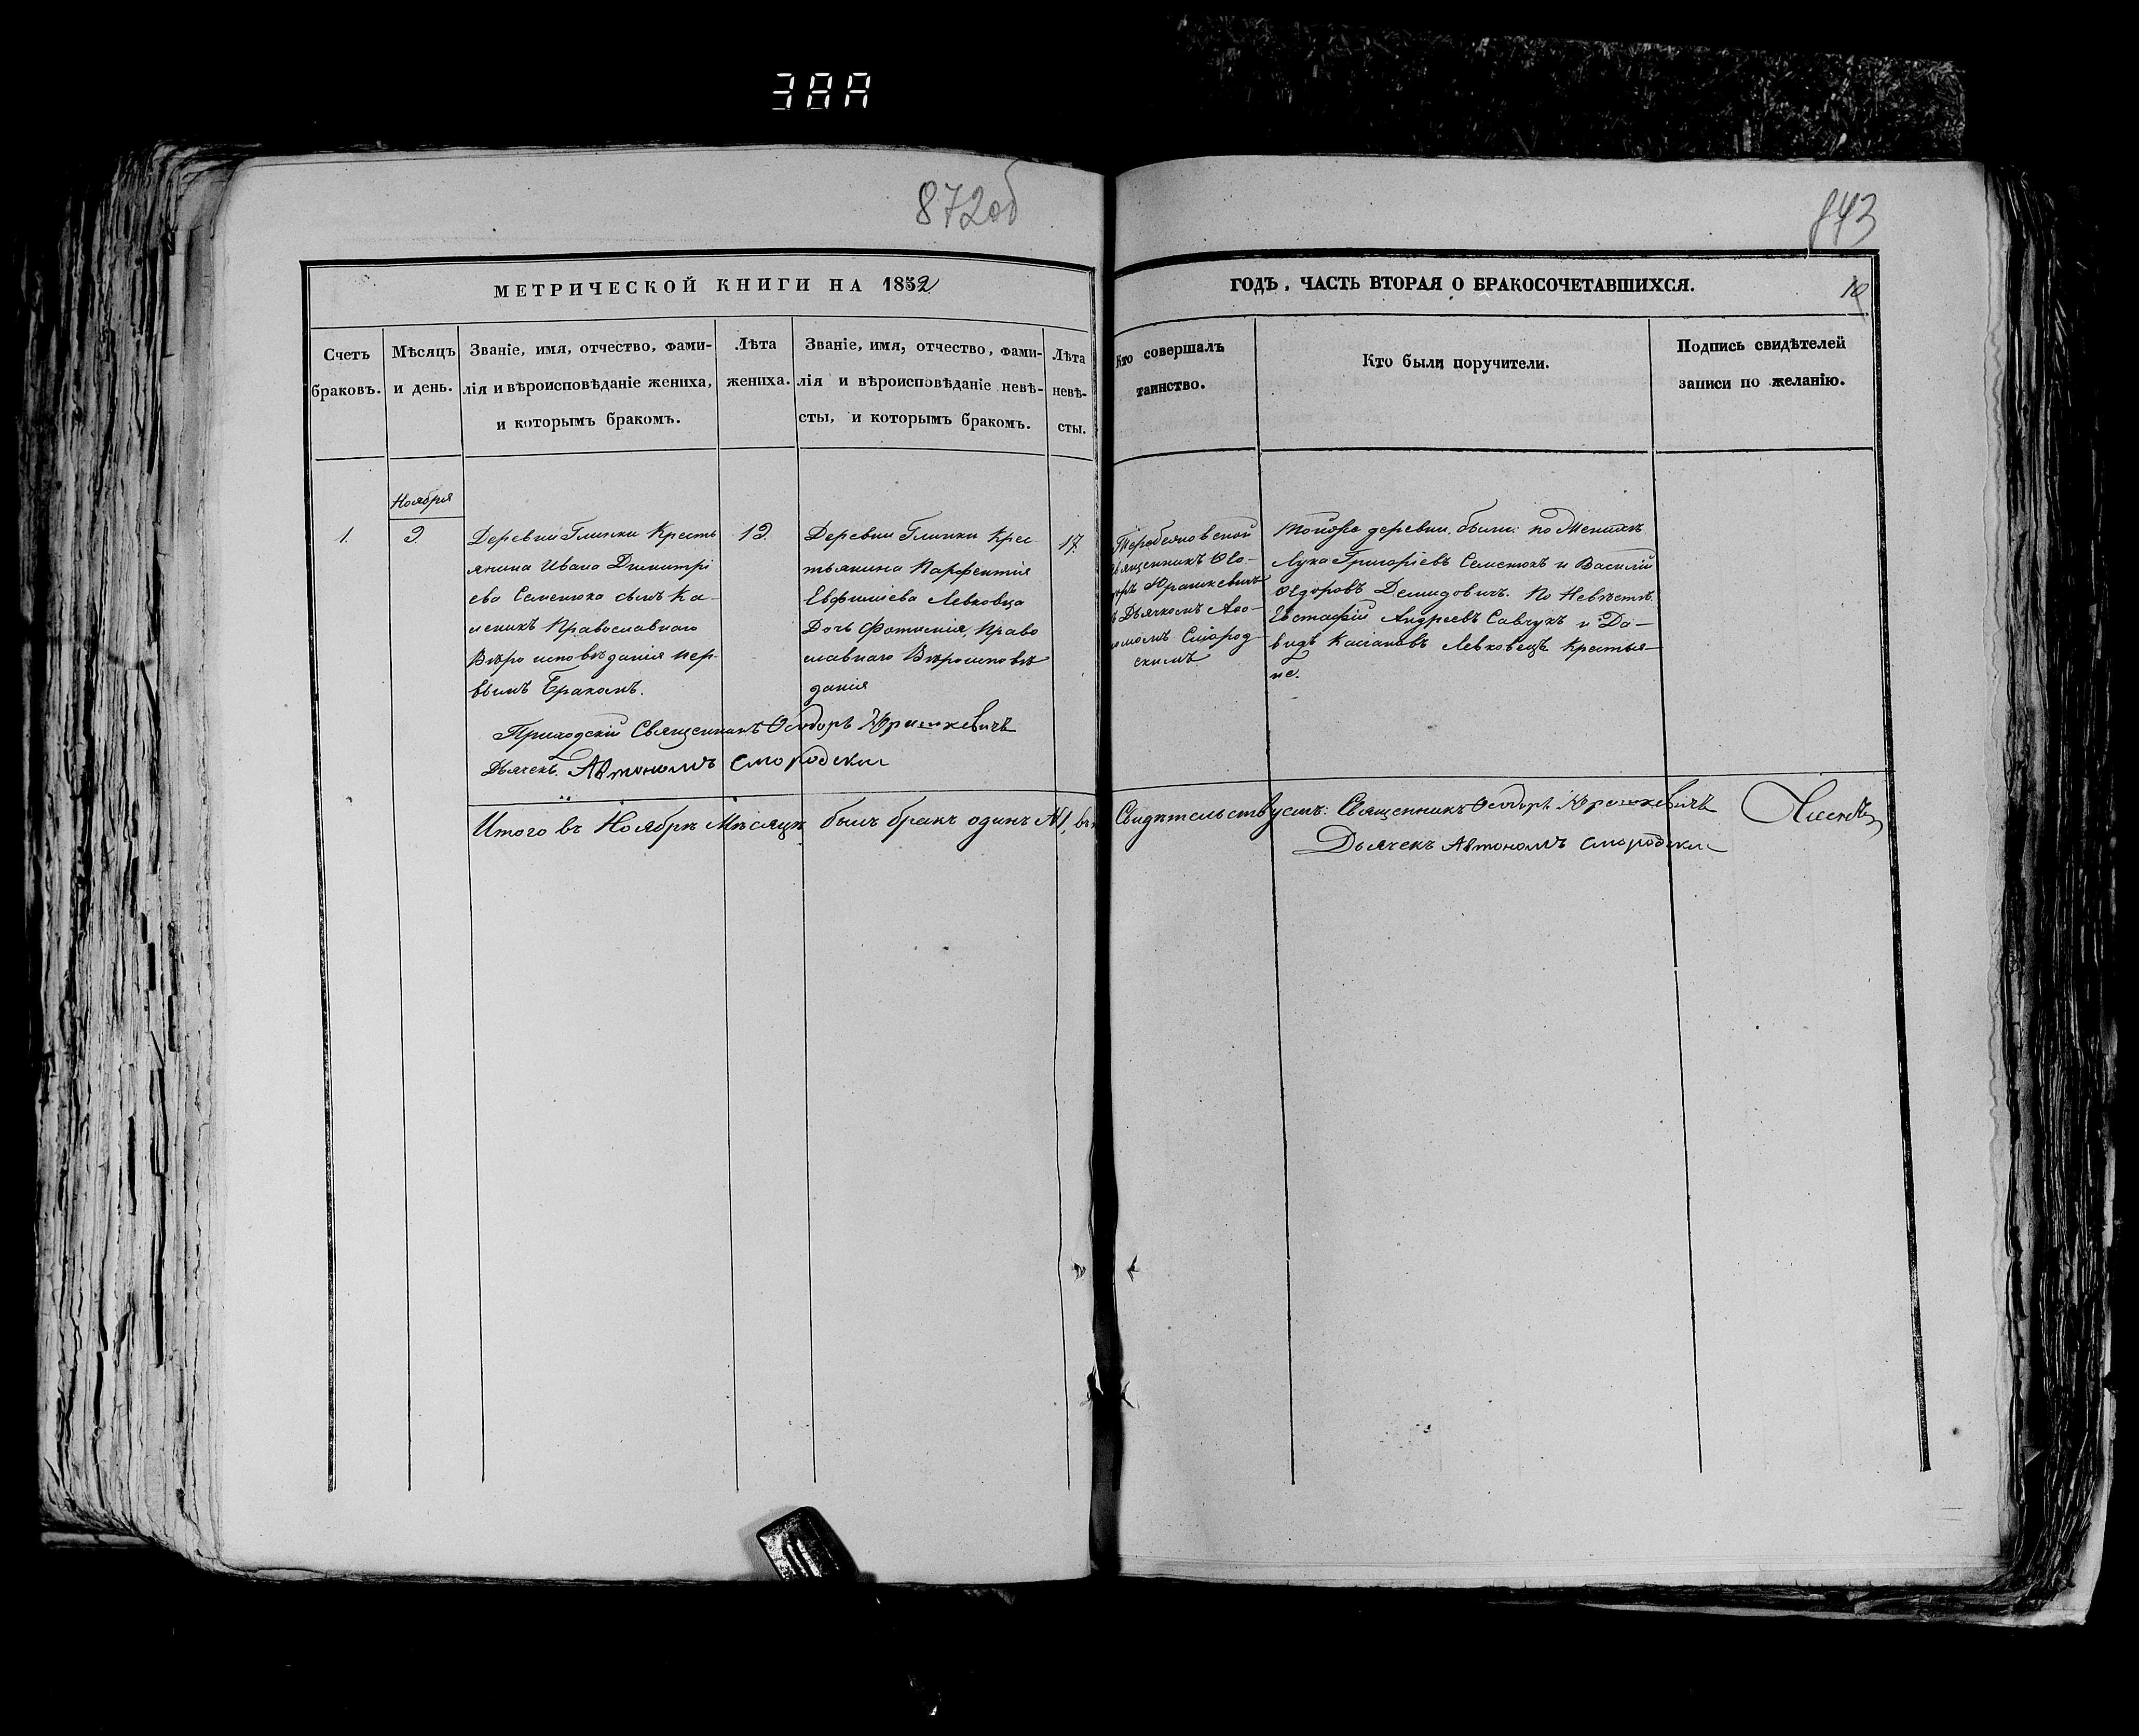 38A
872об
843
МЕТРИЧЕСКОЙ КНИГИ НА 1852
ГОДЪ, ЧАСТЬ ВТОРАЯ О БРАКОСОЧЕТАВШИХСЯ.
10
Счетъ
браковъ.
Мѣсяцъ
и день.
Званіе, имя, отчество, фами-
лія и вѣроисповѣданіе жениха,
и которымъ бракомъ.
Лѣта
жениха.
Званіе, имя, отчество, фами-
лія и вѣроисповѣданіе невѣ-
сты, и которымъ бракомъ.
Лѣта
невѣ-
сты.
Кто совершалъ
таинство.
Кто были поручители.
Подпись свидѣтелей
записи по желанію.
1.
Ноября
9.
Деревни Глинки Кресть
янина Ивана Димитрі
ева Семенюка сынъ Ка-
леникъ Православнаго
Вѣро исповѣданія пер-
вымъ Бракомъ.
19.
Деревни Глинки Крес
тьянина Парфентія
Евфиміева Левковца
Дочь Фотинія, Право
славнаго Вѣроисповѣ
данія
17.
Священникъ Ѳео-
доръ Юрашкевичъ
съ Дьячкомъ Авто-
номомъ Смород
скимъ
Тойже деревни были: по Женихѣ
Лука Григоріевъ Семенюкъ и Василій
Ѳедоровъ Демидовичъ. По Невѣстѣ.
Евстафій Андреевъ Савчукъ и Да-
видъ Касіановъ Левковецъ Крестья
не.
Приходскій Священникъ Ѳеодоръ Юрашкевичъ
Дьячекъ Автономъ Смородски
Итого въ Ноябрѣ Мѣсяцѣ былъ бракъ одинъ №1,
Свидѣтельствуемъ: Священникъ Ѳеодоръ Юрашкевичъ
Дьячекъ Автономъ Смородски